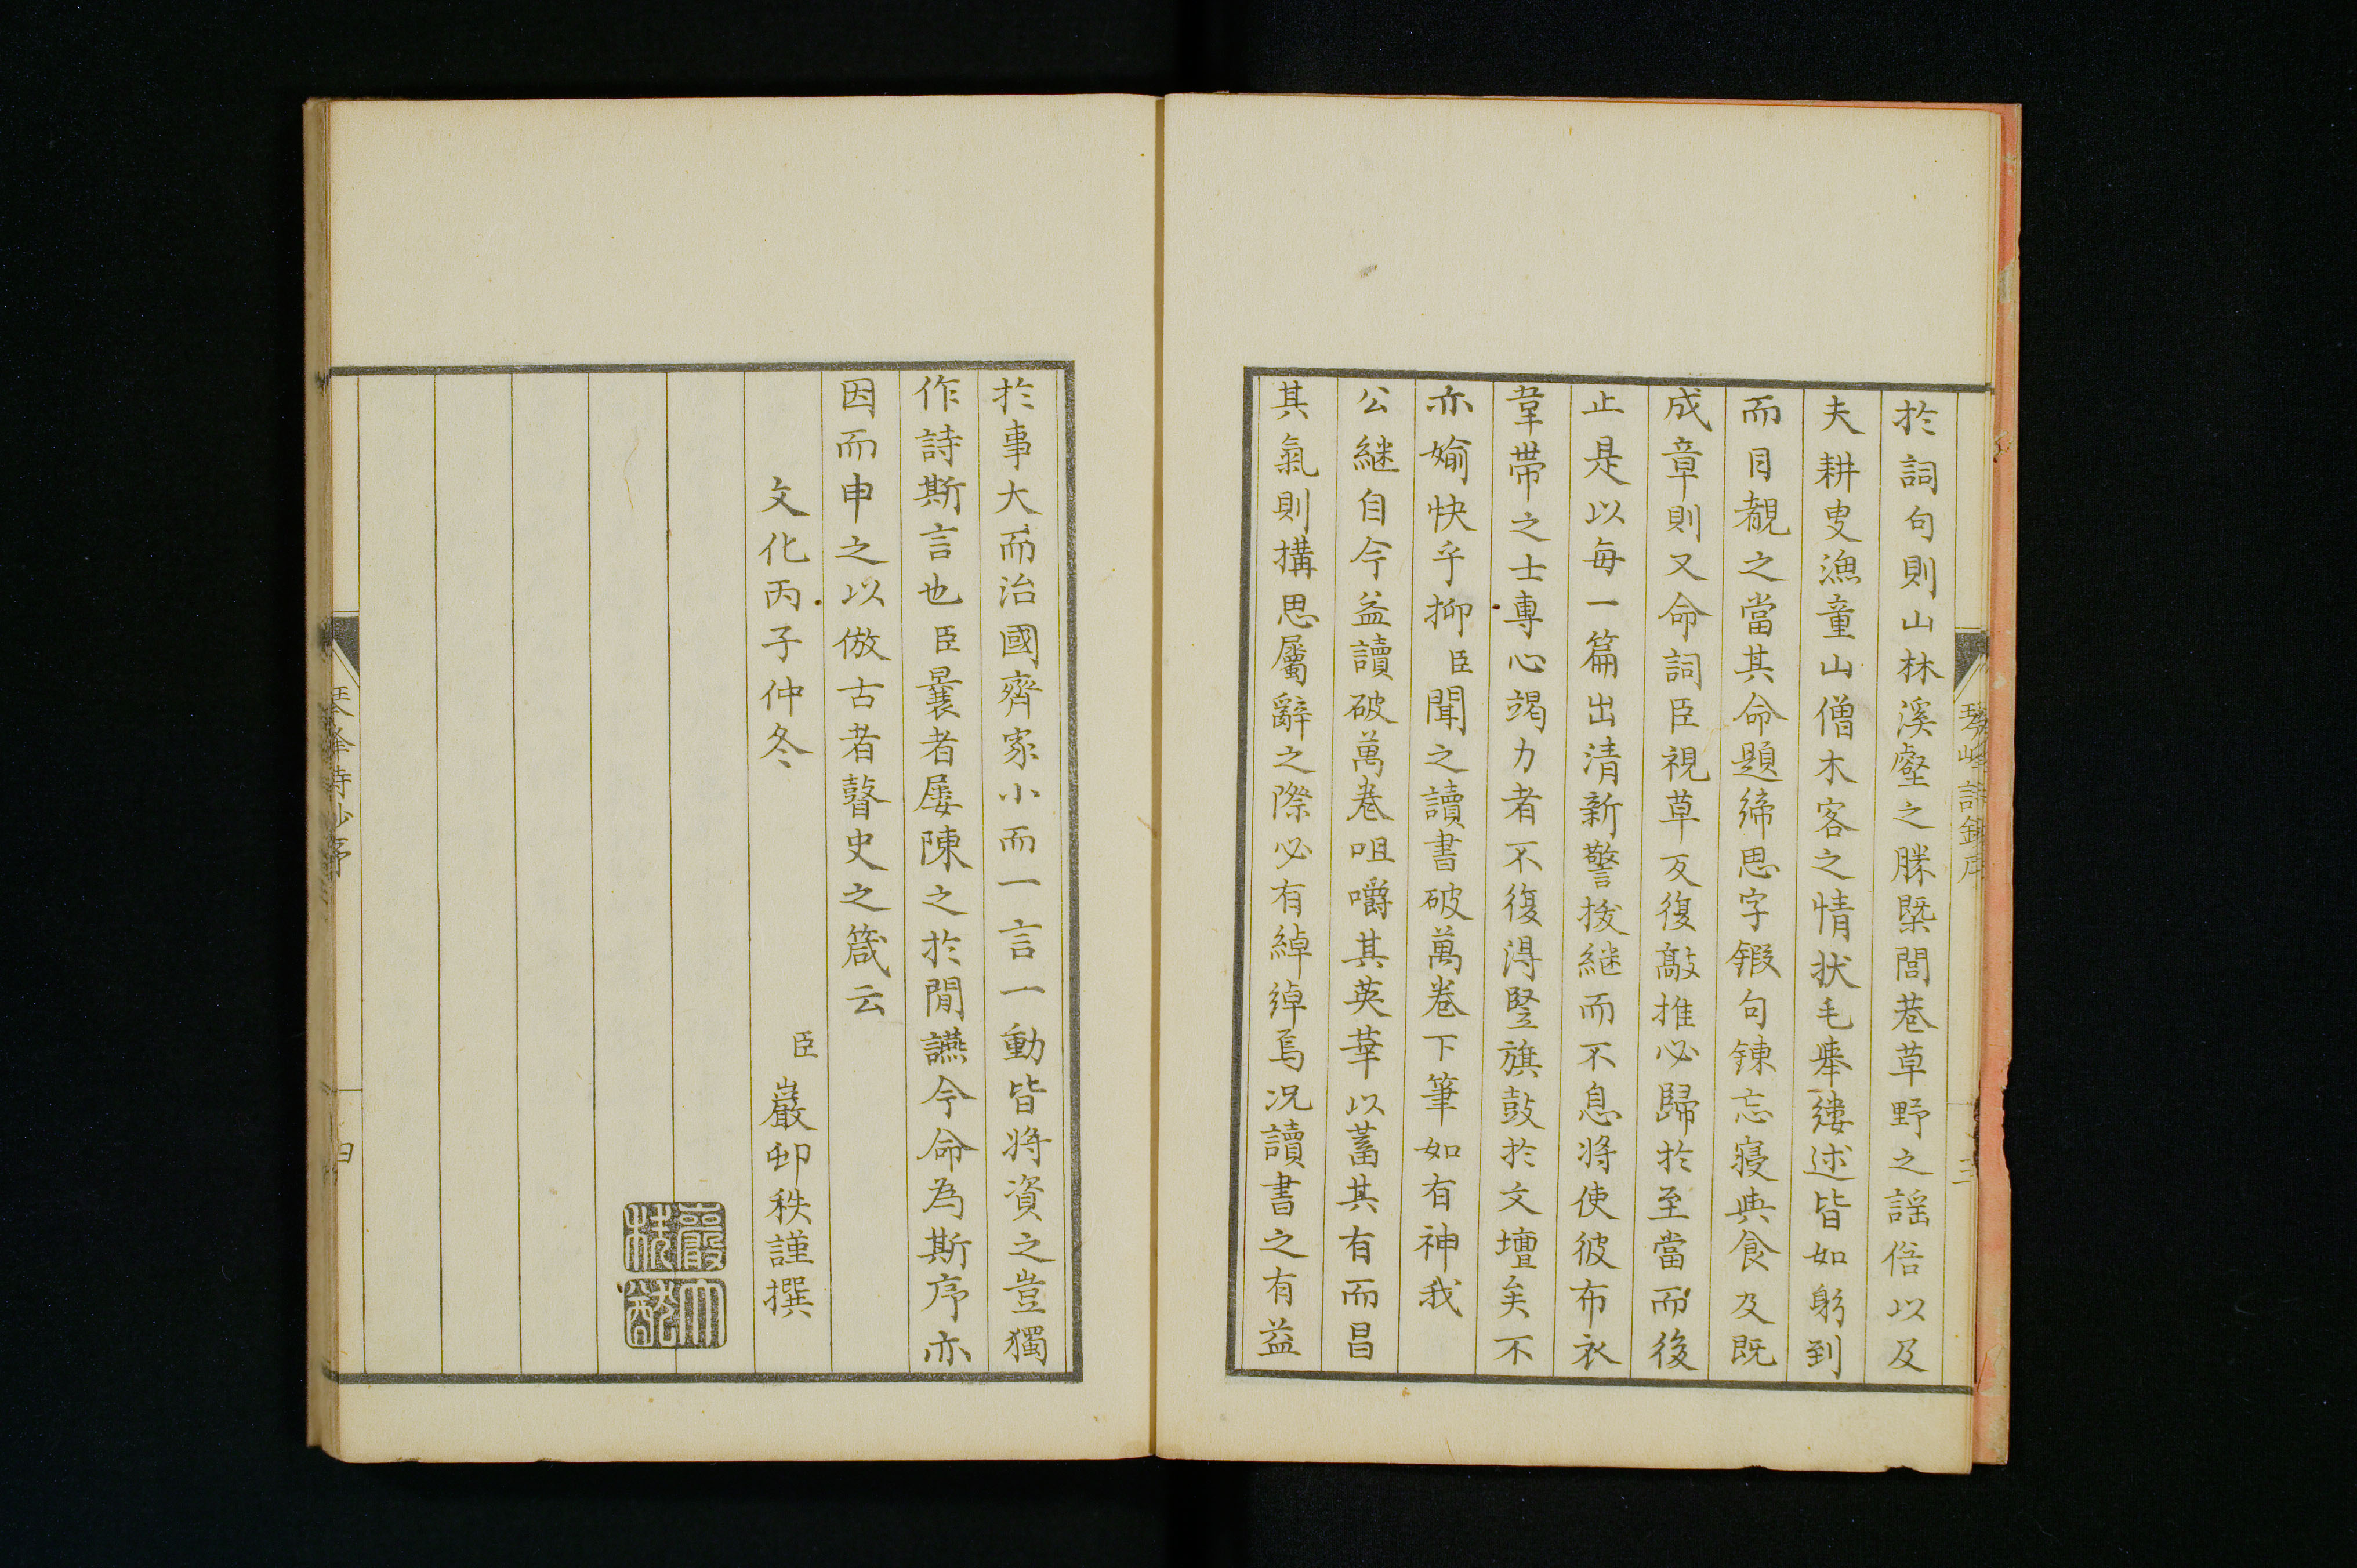 於詞句則山林溪壑之勝槩閭巷草野之謡俗以及
夫耕叟漁童山僧木客之情状毛舉縷述皆如躬到
而目覩之當其命題締思字鍛句錬忘寢與食及既
成章則又命詞臣視草反復敲推必歸於至當而後
止是以毎一篇出清新警抜継而不息将使彼布衣
韋帯之士専心竭力者不復得竪旗鼓於文壇矣不
亦媮快乎抑臣聞之讀書破萬巻下筆如有神我
公継自今益讀破萬巻咀嚼其英華以蓄其有而昌
其氣則搆思屬辭之際必有綽綽焉况讀書之有益
於事大而治國齊家小而一言一動皆将資之豈獨
作詩斯言也臣曩者屡陳之於閒讌今命為斯序亦
因而申之以倣古者瞽史之箴云
文化丙子仲冬
臣巌邨秩謹撰